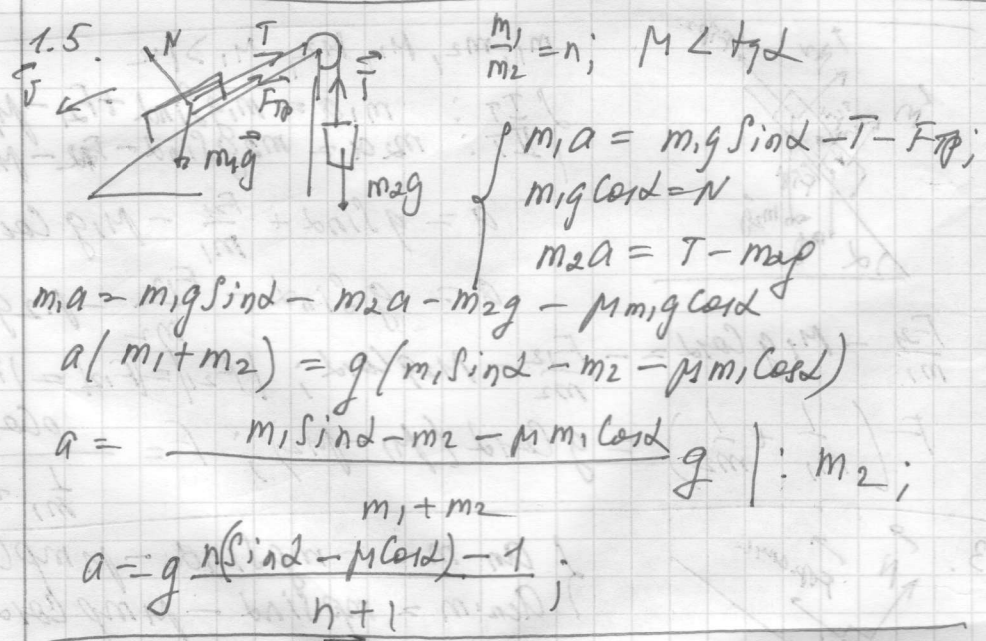 1.5.
N T T
υ Fтр
m₁g
m₂g
m₁/m₂ = n; μ < tgα
m₁a = m₁g Sinα - T - Fтр;
m₁g Cosα = N
m₂a = T - m₂g
m₁a = m₁g Sinα - m₂a - m₂g - μm₁g Cosα
a(m₁ + m₂) = g(m₁ Sinα - m₂ - μm₁ Cosα)
a = (m₁ Sinα - m₂ - μm₁ Cosα)/(m₁ + m₂) g | : m₂;
a = g (n(Sinα - μCosα) - 1)/(n + 1);